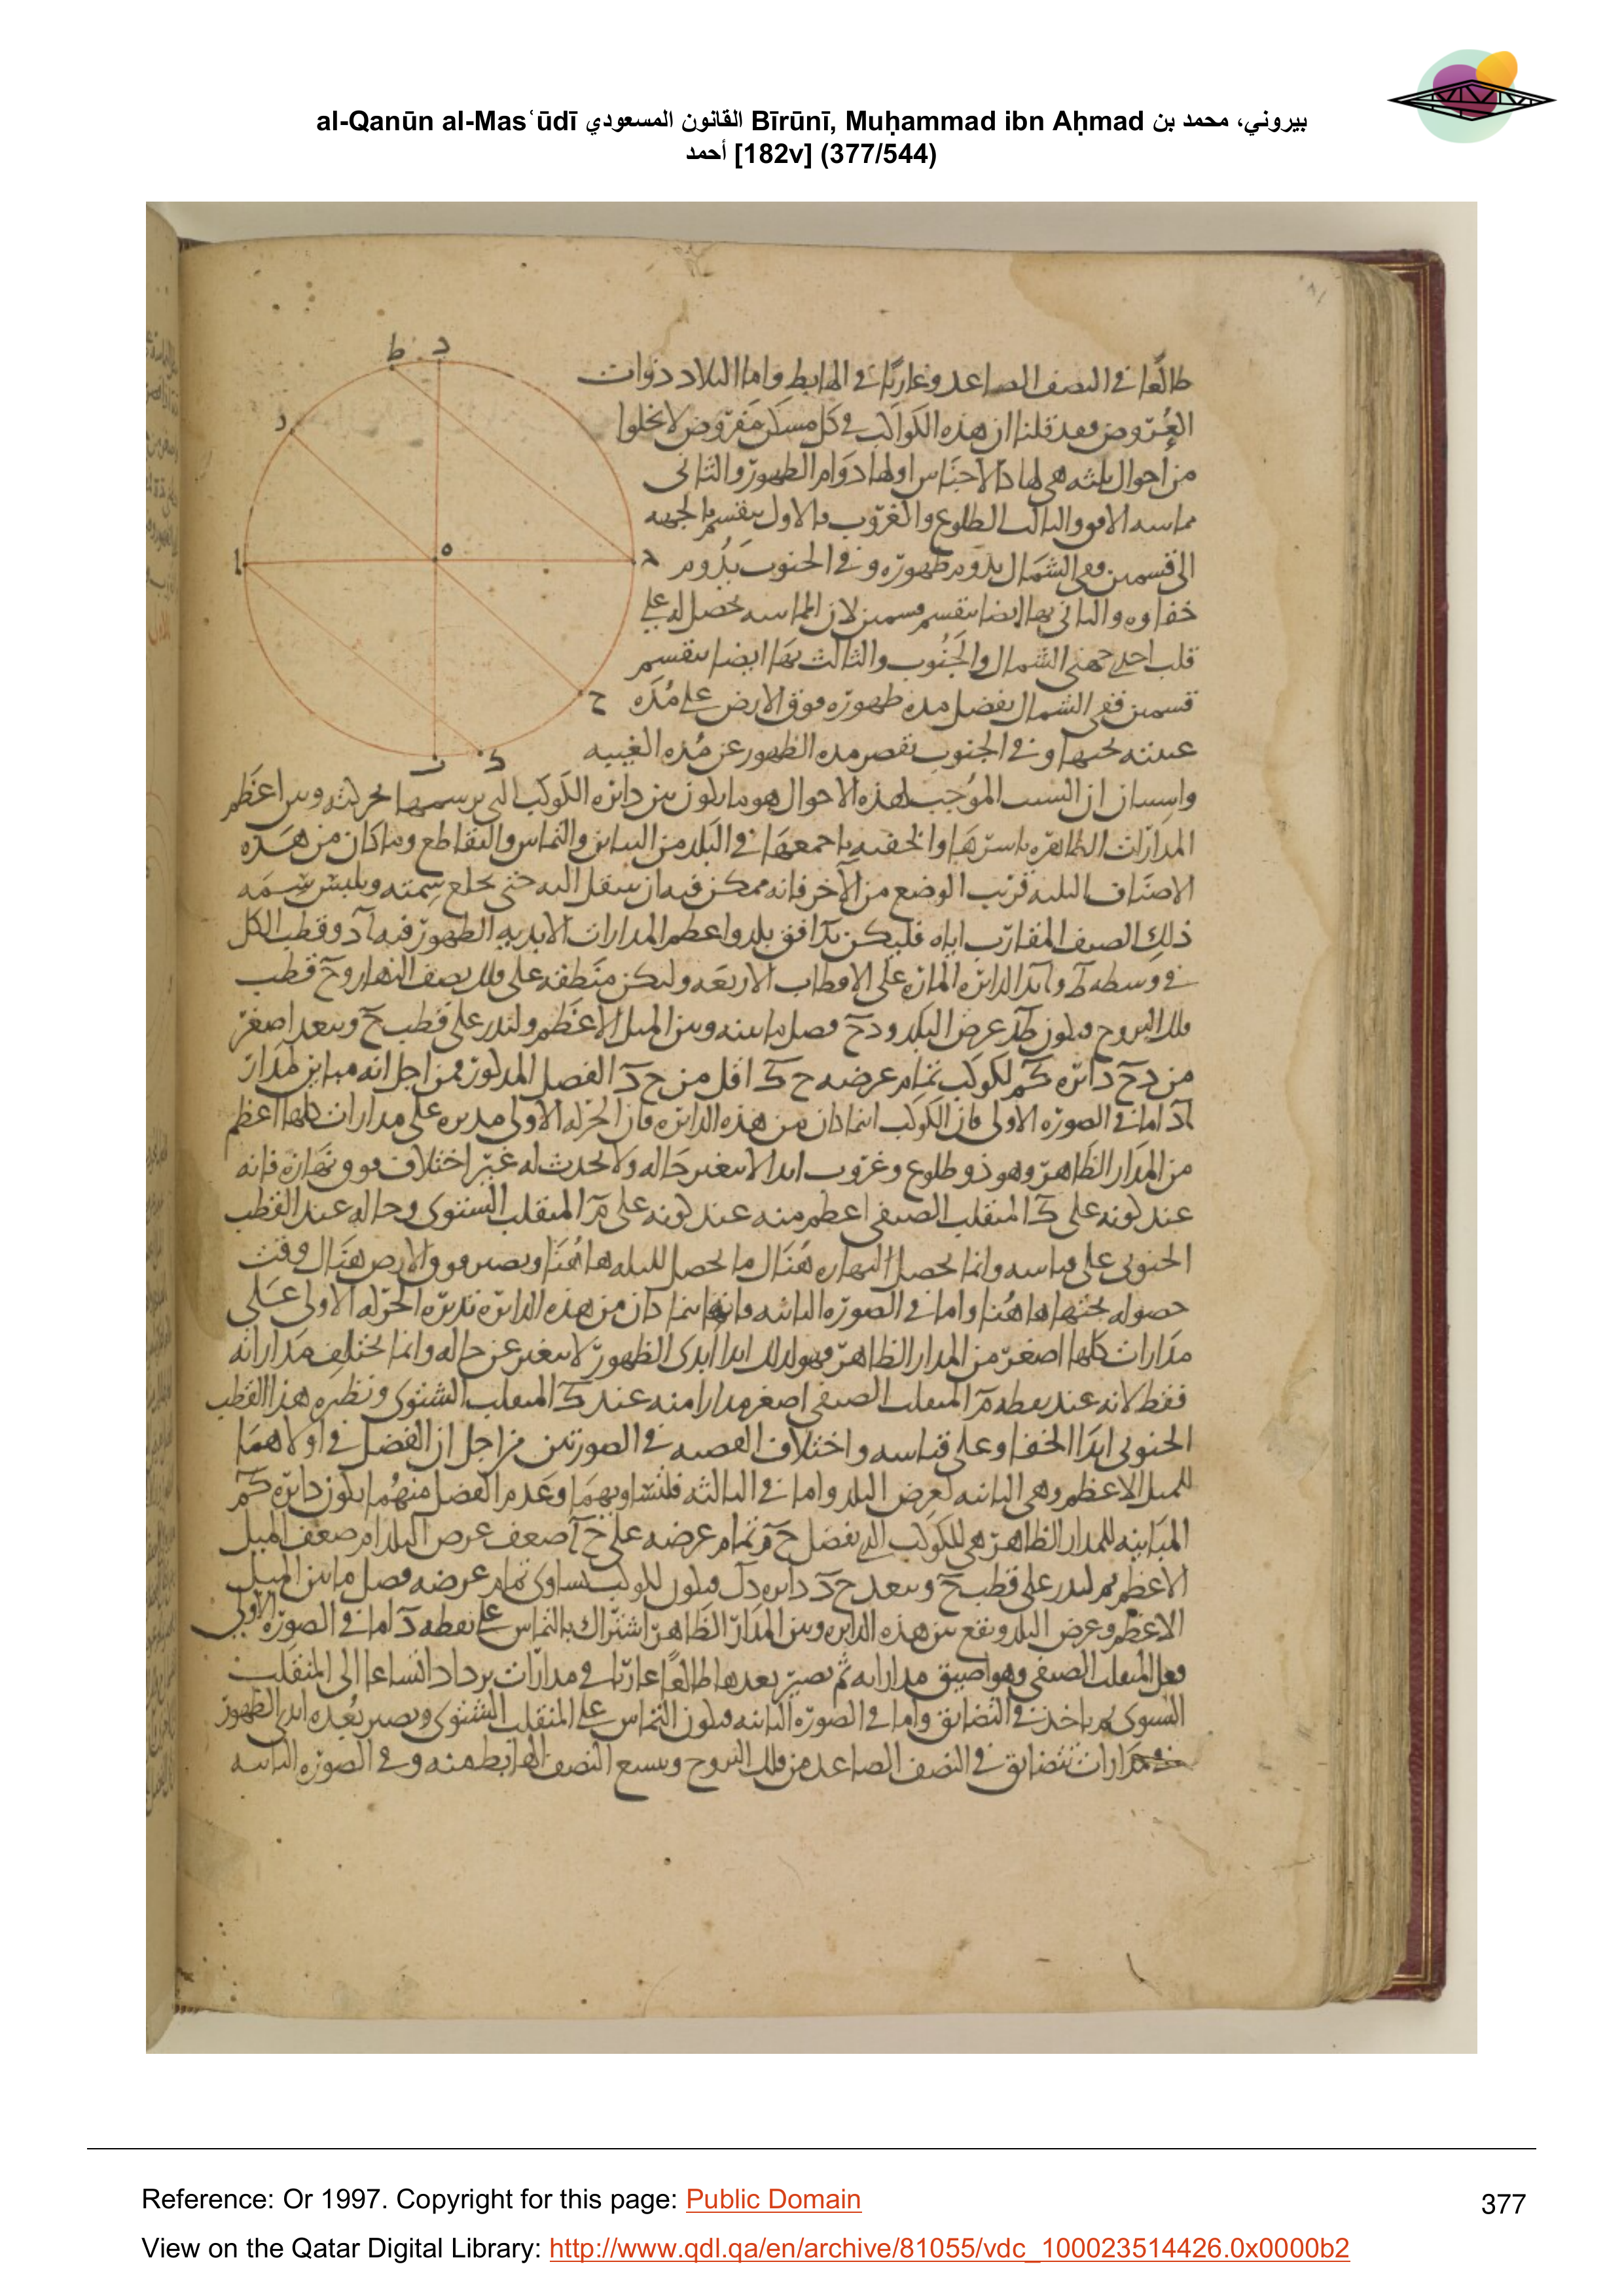 al-Qanūn al-Masʿūdī القانون المسعودي Bīrūnī, Muḥammad ibn Aḥmad بيروني، محمد بن
أحمد [182v] (377/544)
طالعًا في النصف الصاعد وغاربًا في الهابط واما البلاد ذوات
العُروض فقد قلنا ان هذه الكواكب في كل مسكن مفروض لا تخلوا
من احوال ثلثه هي لها كالاجناس اولها دوام الظهور والثاني
مماسه الافق والثالث الطلوع والغروب والاول ينقسم بالجهه
الى قسمين ففي الشمال يدوم ظهوره وفي الجنوب يدوم
خفاوه والثاني بها ايضا ينقسم قسمين لان المماسه تحصل له على
قلب احدى جهتي الشمال والجنوب والثالث بها ايضا ينقسم
قسمين ففي الشمال يفضل مده ظهوره فوق الارض على مُده
غيبته تحتها وفي الجنوب تقصر مده الظهور عن مُده الغيبه
ان السبب الموجب لهذه الاحوال هو ما يكون بين دائره الكوكب التي يرسمها بحركته وبين اعظم
المدارات الظاهره باسرها والخفيه باجمعها في البلد من التباين والتماس والتقاطع وما كان من هذه
الاصناف الثلثه قريب الوضع من الآخر فانه ممكن فيه ان ينتقل اليه حتى يخلع سمته ويلبس سمه
ذلك الصنف المقارب اياه فليكن افق بلد واعظم المدارات الابديه الظهور فيه اد وقطب الكل
في وسطه ط الدائره الماره على الاقطاب الاربعه ولتكن منطقه على فلك نصف النهار وح قطب
فلك البروج فيكون عرض البلد ودح فصل ما بينه وبين الميل الاعظم ولندر على قطب ح وببعد اصغر
من دح دائره كم لكوكب تمام عرضه ح ك اقل من ح د الفصل المذكور فمن اجل انه مباين لمدار
اد اما في الصوره الاولى فان الكوكب اينما كان من هذه الدائره فان الحركه الاولى مديره على مدارات كلها اعظم
من المدار الظاهر وهو ذو طلوع وغروب ابدا لا يتغير حاله ولا يحدث له غير اختلاف نهاره فانه
عند كونه على ك المنقلب الصيفي اعظم منه عند كونه على م المنقلب الشتوي وحاله عند القطب
الجنوبي على قياسه وانما يحصل النهاره هناك ما يحصل لليله هاهُنا ويصير فوق الارض هناك وقت
حصوله تحتها هاهُنا واما في الصوره الثانيه فانه اينما كان من هذه الدائره تديره الحركه الاولى على
مدارات كلها اصغر من المدار الظاهر فهو لذلك ابدا ابدى الظهور لا يتغير عن حاله وانما يختلف مداراته
فقط لانه عند نقطه م المنقلب الصيفي اصغر مدارا منه عند ك المنقلب الشتوي ونظيره هذا القطب
الجنوبي ابدا الخفا وعلى قياسه واختلاف القصه في الصورتين من اجل ان الفضل في اولاهما
للميل الاعظم وهي الثانيه لعرض البلد واما في الثالثه فلتساويهما وعدم الفضل منهُما يكون دائره كم
المباينه للمدار الظاهر هي للكوكب الذي يفضل ح م تمام عرضه على ح ا ضعف عرض البلد او ضعف الميل
الاعظم ثم لندر على قطب ح وببعد ح د دائره دل فيكون للكوكب يساوي تمام عرضه فصل ما بين الميل
الاعظم وعرض البلد ويقع بين هذه الدائره وبين المدار الظاهر اشتراك بالتماس على نقطه د اما في الصوره الاولى
فعلى المنقلب الصيفي وهو اضيق مداراته ثم يصير بعدها طالعًا غاربًا في مدارات يزداد اتساعا الى المنقلب
الشتوي ثم ياخذ في التضايق واما في الصوره الثانيه فيكون التماس على المنقلب الشتوي ويصير بُعده ابدى الظهور
مدارات تتضايق في النصف الصاعد من فلك البروج ويتسع النصف الهابط منه وفي الصوره الثالثه
Reference: Or 1997. Copyright for this page: Public Domain
377
View on the Qatar Digital Library: http://www.qdl.qa/en/archive/81055/vdc_100023514426.0x0000b2